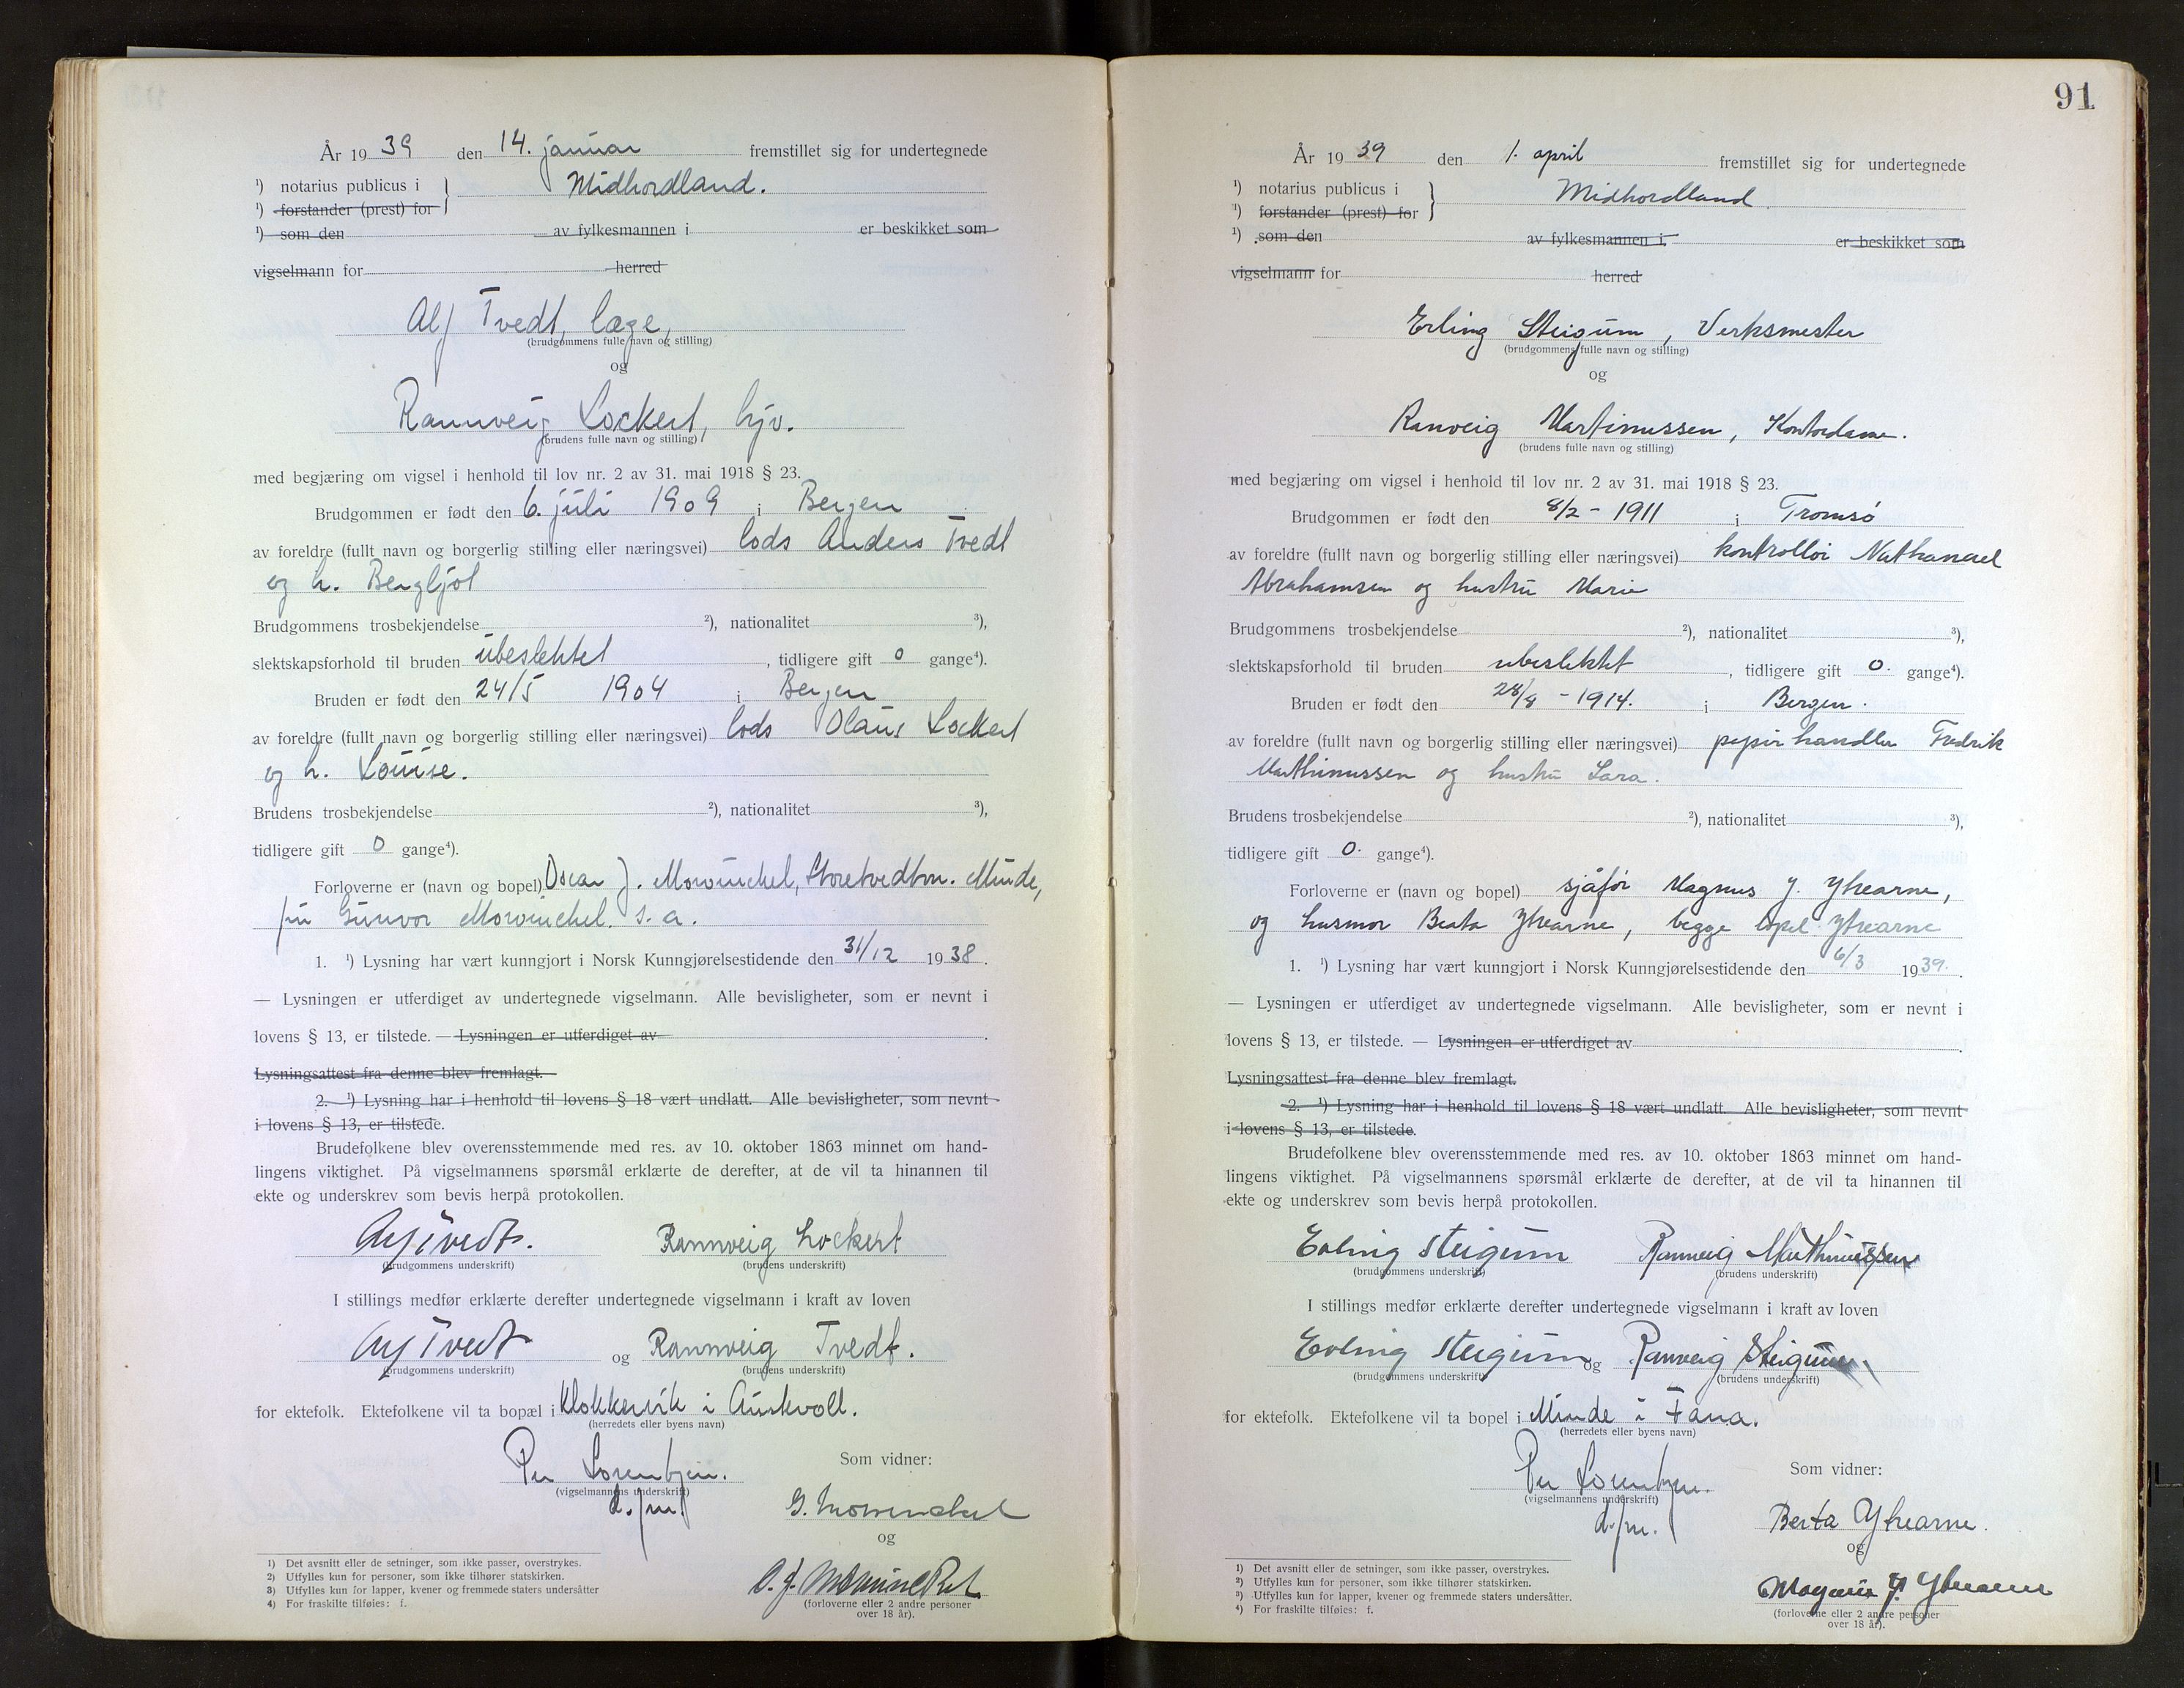 År 19 39 den 14. januar fremstillet sig for undertegnede
¹) notarius publicus i Midhordland.
¹) forstander (prest) for
¹) som den av fylkesmannen i er beskikket som
vigselmann for herred
Alf Tvedt, læge,
(brudgommens fulle navn og stilling)
og
Rannveig Lockert, hjv.
(brudens fulle navn og stilling)
med begjæring om vigsel i henhold til lov nr. 2 av 31. mai 1918 § 23.
Brudgommen er født den 6. juli 1909 i Bergen
av foreldre (fullt navn og borgerlig stilling eller næringsvei) lods Anders Tvedt
og h. Bergljot
Brudgommens trosbekjendelse ²), nationalitet ³),
slektskapsforhold til bruden ubeslektet, tidligere gift 0 gange⁴).
Bruden er født den 24/5 1904 i Bergen
av foreldre (fullt navn og borgerlig stilling eller næringsvei) lods Olaus Lockert
og h. Louise.
Brudens trosbekjendelse ²), nationalitet ³),
tidligere gift 0 gange⁴).
Forloverne er (navn og bopel) Oscar J. Mowinckel, Storetvedtvn. Minde,
fru Gunvor Mowinckel. s. a.
1. ¹) Lysning har vært kunngjort i Norsk Kunngjørelsestidende den 31/12 1938.
— Lysningen er utferdiget av undertegnede vigselmann. Alle bevisligheter, som er nevnt i
lovens § 13, er tilstede. — Lysningen er utferdiget av .
Lysningsattest fra denne blev fremlagt.
2. ¹) Lysning har i henhold til lovens § 18 vært undlatt. Alle bevisligheter, som nevnt
i lovens § 13, er tilstede.
Brudefolkene blev overensstemmende med res. av 10. oktober 1863 minnet om hand-
lingens viktighet. På vigselmannens spørsmål erklærte de derefter, at de vil ta hinannen til
ekte og underskrev som bevis herpå protokollen.
Alf Tvedt. Rannveig Lockert
(brudgommens underskrift) (brudens underskrift)
I stillings medfør erklærte derefter undertegnede vigselmann i kraft av loven
Alf Tvedt og Rannveig Tvedt.
(brudgommens underskrift) (brudens underskrift)
for ektefolk. Ektefolkene vil ta bopæl i Klokkervik i Austevoll.
(herredets eller byens navn)
Per Lorentzen.
(vigselmannens underskrift)
d. fm.
Som vidner:
G. Mowinckel
og
O. J. Mowinckel
(forloverne eller 2 andre personer
over 18 år).
1) Det avsnitt eller de setninger, som ikke passer, overstrykes.
2) Utfylles kun for personer, som ikke tilhører statskirken.
3) Utfylles kun for lapper, kvener og fremmede staters undersåtter
4) For fraskilte tilføies: f.
91
År 19 39 den 1. april fremstillet sig for undertegnede
¹) notarius publicus i Midhordland
¹) forstander (prest) for
¹) som den av fylkesmannen i er beskikket som
vigselmann for herred
Erling Steigum, Verksmester
(brudgommens fulle navn og stilling)
og
Ranveig Martinussen, Kontordame.
(brudens fulle navn og stilling)
med begjæring om vigsel i henhold til lov nr. 2 av 31. mai 1918 § 23.
Brudgommen er født den 8/2 - 1911 i Tromsø
av foreldre (fullt navn og borgerlig stilling eller næringsvei) kontrollør Nathanael
Abrahamsen og hustru Marie
Brudgommens trosbekjendelse ²), nationalitet ³),
slektskapsforhold til bruden ubeslektet, tidligere gift 0. gange⁴).
Bruden er født den 28/8 - 1914. i Bergen.
av foreldre (fullt navn og borgerlig stilling eller næringsvei) papirhandler Fredrik
Marthinussen og hustru Sara.
Brudens trosbekjendelse ²), nationalitet ³),
tidligere gift 0. gange⁴).
Forloverne er (navn og bopel) sjåfør Magnus J. Ytrearne,
og husmor Beata Ytrearne, begge bopel Ytrearne
1. ¹) Lysning har vært kunngjort i Norsk Kunngjørelsestidende den 6/3 1939.
— Lysningen er utferdiget av undertegnede vigselmann. Alle bevisligheter, som er nevnt i
lovens § 13, er tilstede. — Lysningen er utferdiget av .
Lysningsattest fra denne blev fremlagt.
2. ¹) Lysning har i henhold til lovens § 18 vært undlatt. Alle bevisligheter, som nevnt
i lovens § 13, er tilstede.
Brudefolkene blev overensstemmende med res. av 10. oktober 1863 minnet om hand-
lingens viktighet. På vigselmannens spørsmål erklærte de derefter, at de vil ta hinannen til
ekte og underskrev som bevis herpå protokollen.
Erling Steigum Ranveig Marthinussen
(brudgommens underskrift) (brudens underskrift)
I stillings medfør erklærte derefter undertegnede vigselmann i kraft av loven
Erling Steigum og Ranveig Steigum.
(brudgommens underskrift) (brudens underskrift)
for ektefolk. Ektefolkene vil ta bopel i Minde i Fana.
(herredets eller byens navn)
Per Lorentzen.
(vigselmannens underskrift)
d. fm.
Som vidner:
Berta Ytrearne.
og
Magnus J. Ytrearne
(forloverne eller 2 andre personer
over 18 år).
1) Det avsnitt eller de setninger, som ikke passer, overstrykes.
2) Utfylles kun for personer, som ikke tilhører statskirken.
3) Utfylles kun for lapper, kvener og fremmede staters undersåtter.
4) For fraskilte tilføies: f.